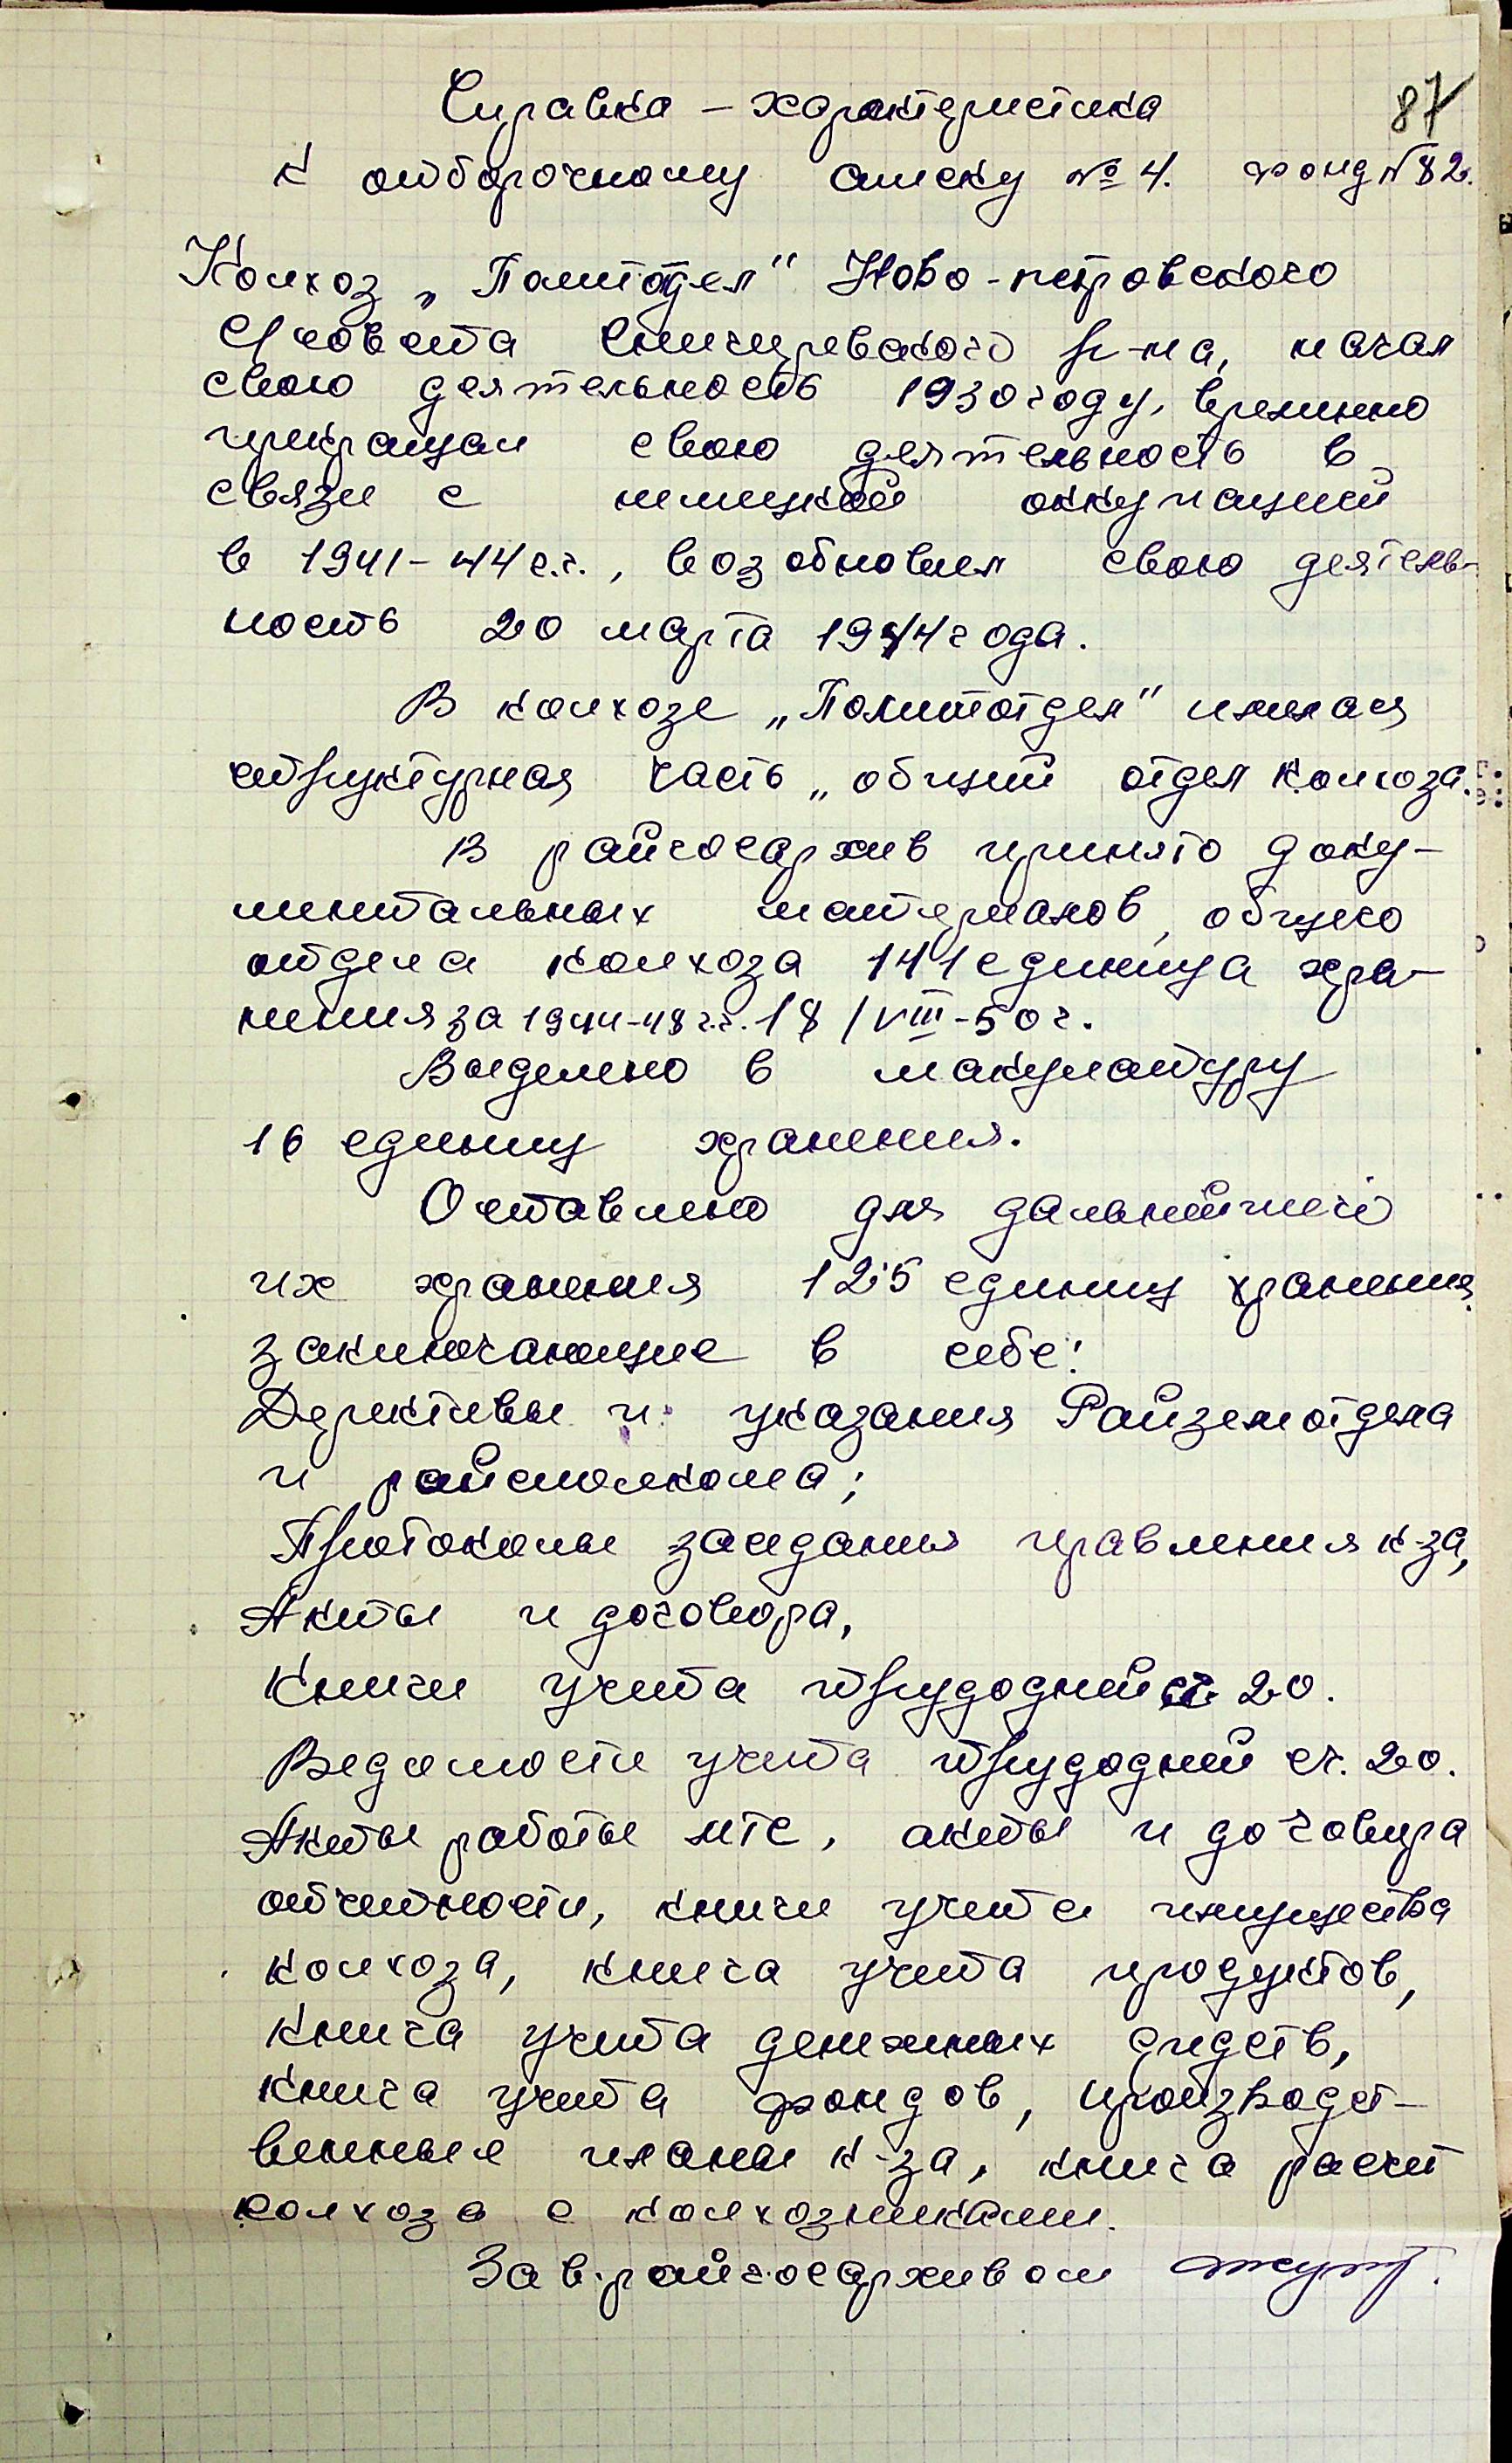 87
Справка – характеристика
к отборочному списку № 4. фонд N 82.
Колхоз „Политотдел" Ново-петровского
с/совета Снигиревского р-на, начал
свою деятельность 1930 году, временно
прекращал свою деятельность в
связи с немецкой оккупацией
в 1941-44 г.г., возобновил свою деятель-
ность 20 марта 1944 года.
В колхозе „Политотдел" имелася
структурная часть „общий отдел колхоза.
В райгосархив принято доку-
ментальных материалов, общего
отдела колхоза 141 единица хра-
нения за 1944-48 г.г. 18/VIII-50 г.
Выделено в макулатуру
16 единиц хранения.
Оставлено для дальнейшего
их хранения 125 единиц хранения
заключающие в себе:
Дериктивы и указания Райземотдела
и райсполкома;
Протоколы заседания правления к-за,
Акты и договора,
Книги учета трудодней ст. 20.
Ведомости учета трудодней ст. 20.
Акты работы мтс, акты и договора
отчетности, книги учета имущества
колхоза, книга учета продуктов,
книга учета денежных средств,
книга учета фондов, производст-
венные планы к-за, книга расчет
колхоза с колхозниками.
Зав. райгосархивом